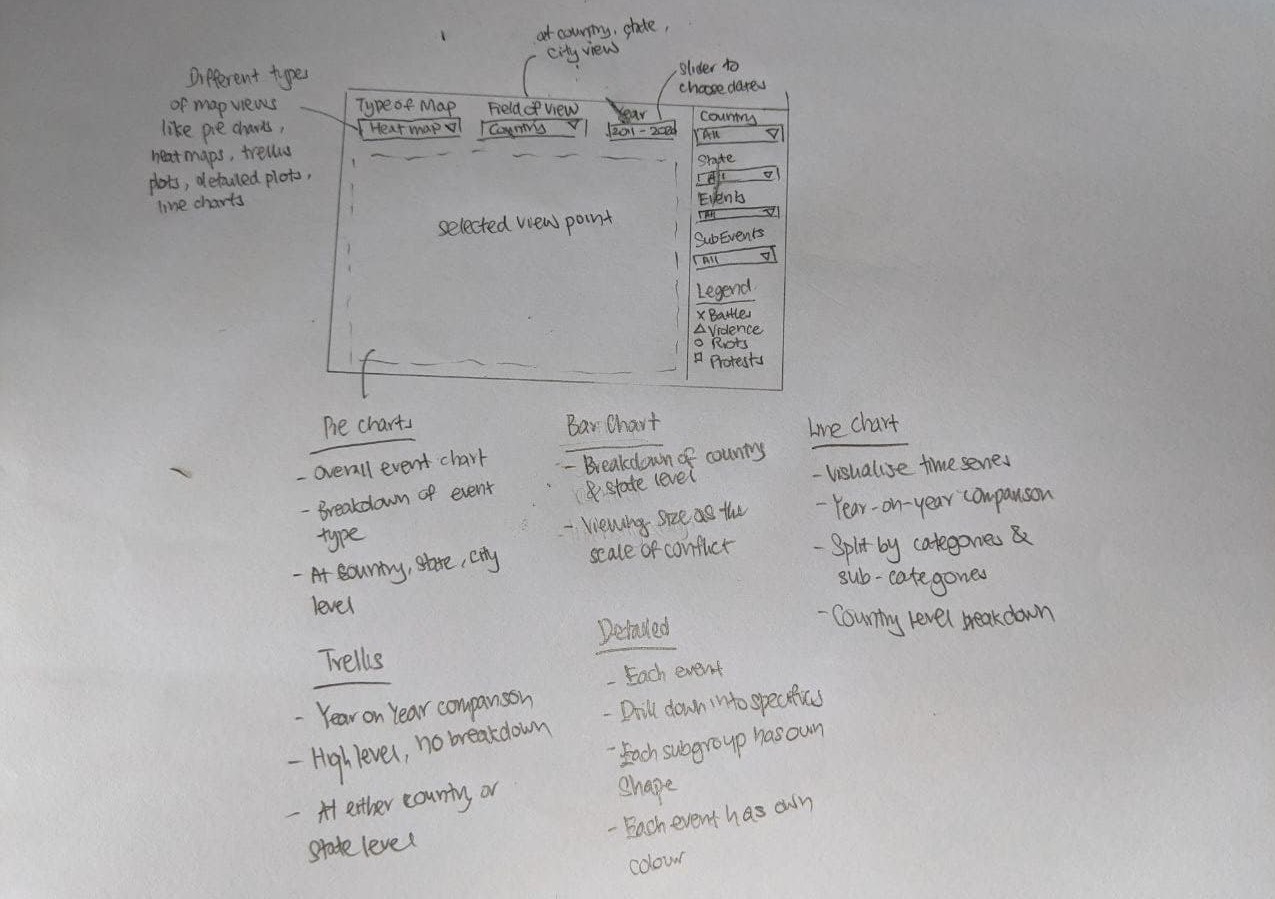 at country, state,
city view
Different types
of map views
like pie charts,
heat maps, trellis
plots, detailed plots,
line charts
slider to
choose dates
Type of Map
Heat map
Field of View
Country
Year
2011 - 2020
Country
All
State
All
Events
All
SubEvents
All
Legend
x Battles
△ Violence
○ Riots
□ Protests
selected view point
Pie charts
- Overall event chart
- Breakdown of event
type
- At Country, State, city
level
Bar Chart
- Breakdown of country
& state level
- Viewing size as the
scale of conflict
Line Chart
- Visualise time series
- Year-on-year comparison
- Split by categories &
sub-categories
- Country level breakdown
Trellis
- Year on Year comparison
- High level, no breakdown
- At either country or
state level
Detailed
- Each event
- Drill down into specifics
- Each subgroup has own
Shape
- Each event has own
colour